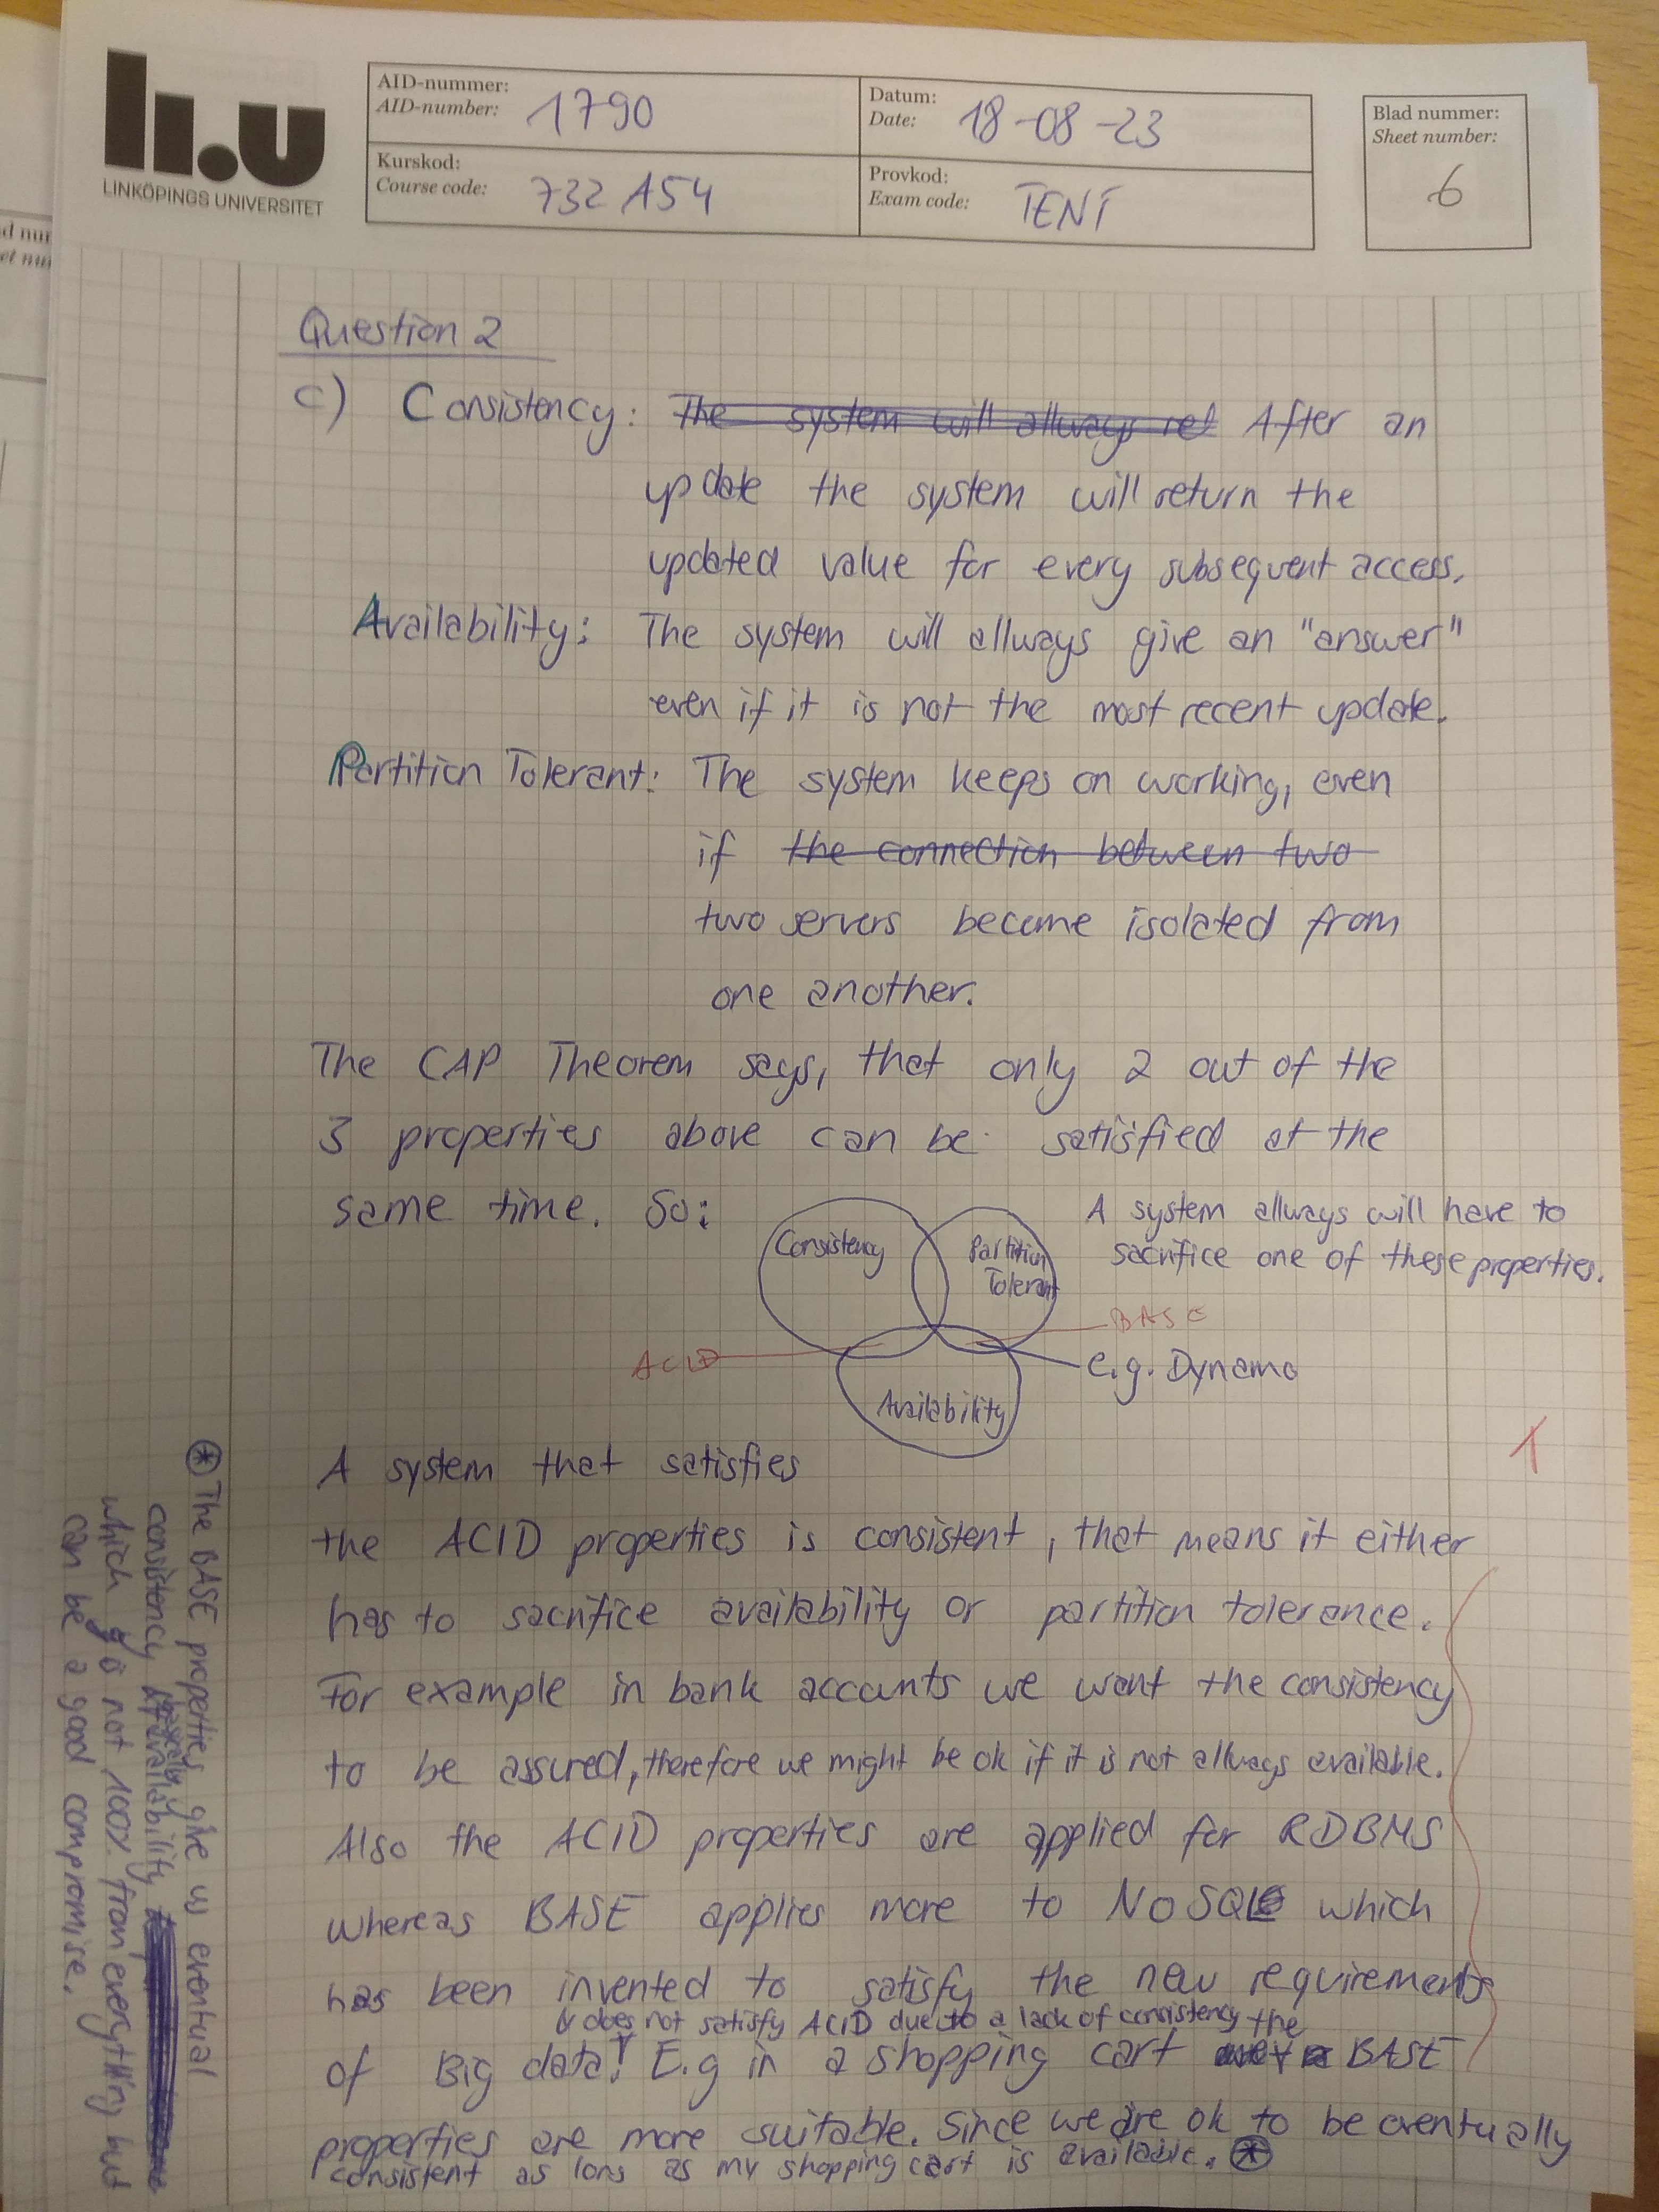 li.u
LINKÖPINGS UNIVERSITET
AID-nummer:
AID-number: 1790
Datum:
Date: 18-08-23
Blad nummer:
Sheet number:
6
Kurskod:
Course code: 732A54
Provkod:
Exam code: TENT
Question 2
c) Consistency: The system will allways ret After an
update the system will return the
updated value for every subsequent access.
Availability: The system will allways give an "answer"
even if it is not the most recent update.
Partition Tolerant: The system keeps on working, even
if the connection between two
two servers become isolated from
one another.
The CAP Theorem says, that only 2 out of the
3 properties above can be satisfied at the
same time. So:
Consistency
Partition
Tolerant
Availability
A system allways will have to
sacrifice one of these properties.
BASE
ACID
e.g. Dynamo
1
A system that satisfies
the ACID properties is consistent, that means it either
has to sacrifice availability or partition tolerance.
For example in bank accounts we want the consistency
to be assured, therefore we might be ok if it is not allways available.
Also the ACID properties are applied for RDBMS
whereas BASE applies more to NoSQL which
has been invented to satisfy the new requirements
& does not satisfy ACID due to a lack of consistency the
of Big data! E.g in a shopping cart BASE
properties are more suitable. Since we are ok to be eventually
consistent as long as my shopping cart is available. *
* The BASE properties give us eventual
consistency basically availability
which is not 100% from everything but
can be a good compromise.